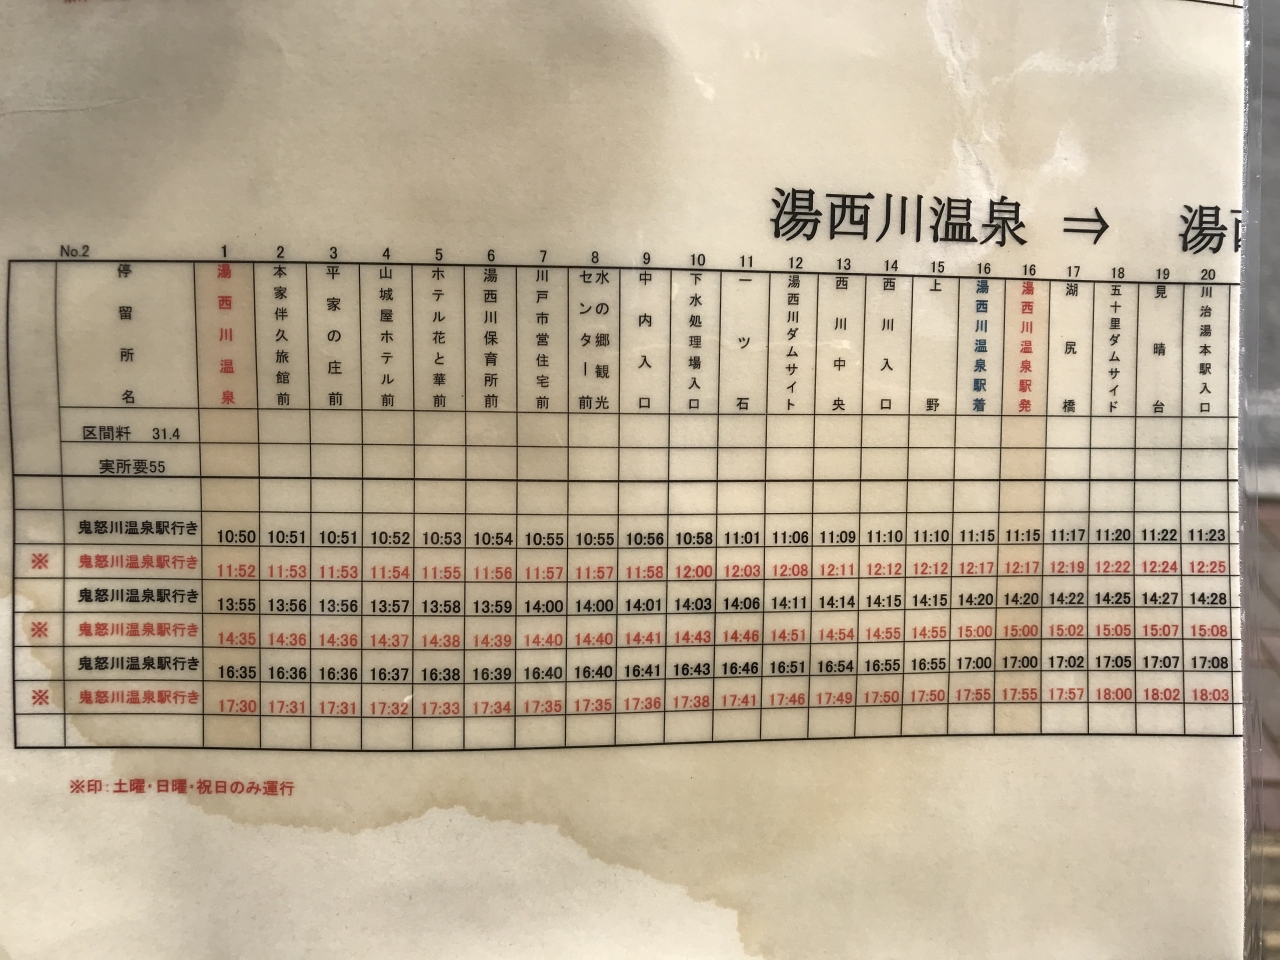 湯西川温泉 ⇒ 湯
No.2 1 2 3 4 5 6 7 8 9 10 11 12 13 14 15 16 16 17 18 19 20
停留所名 湯西川温泉 本家伴久旅館前 平家の庄前 山城屋ホテル前 ホテル花と華前 湯西川保育所前 川戸市営住宅前 水の郷観光センター前 中内入口 下水処理場入口 一ツ石 湯西川ダムサイト 西川中央 西川入口 上野 湯西川温泉駅着 湯西川温泉駅発 湖尻橋 五十里ダムサイド 見晴台 川治湯本駅入口
区間料 31.4
実所要55
鬼怒川温泉駅行き 10:50 10:51 10:51 10:52 10:53 10:54 10:55 10:55 10:56 10:58 11:01 11:06 11:09 11:10 11:10 11:15 11:15 11:17 11:20 11:22 11:23
※ 鬼怒川温泉駅行き 11:52 11:53 11:53 11:54 11:55 11:56 11:57 11:57 11:58 12:00 12:03 12:08 12:11 12:12 12:12 12:17 12:17 12:19 12:22 12:24 12:25
鬼怒川温泉駅行き 13:55 13:56 13:56 13:57 13:58 13:59 14:00 14:00 14:01 14:03 14:06 14:11 14:14 14:15 14:15 14:20 14:20 14:22 14:25 14:27 14:28
※ 鬼怒川温泉駅行き 14:35 14:36 14:36 14:37 14:38 14:39 14:40 14:40 14:41 14:43 14:46 14:51 14:54 14:55 14:55 15:00 15:00 15:02 15:05 15:07 15:08
鬼怒川温泉駅行き 16:35 16:36 16:36 16:37 16:38 16:39 16:40 16:40 16:41 16:43 16:46 16:51 16:54 16:55 16:55 17:00 17:00 17:02 17:05 17:07 17:08
※ 鬼怒川温泉駅行き 17:30 17:31 17:31 17:32 17:33 17:34 17:35 17:35 17:36 17:38 17:41 17:46 17:49 17:50 17:50 17:55 17:55 17:57 18:00 18:02 18:03
※印：土曜・日曜・祝日のみ運行